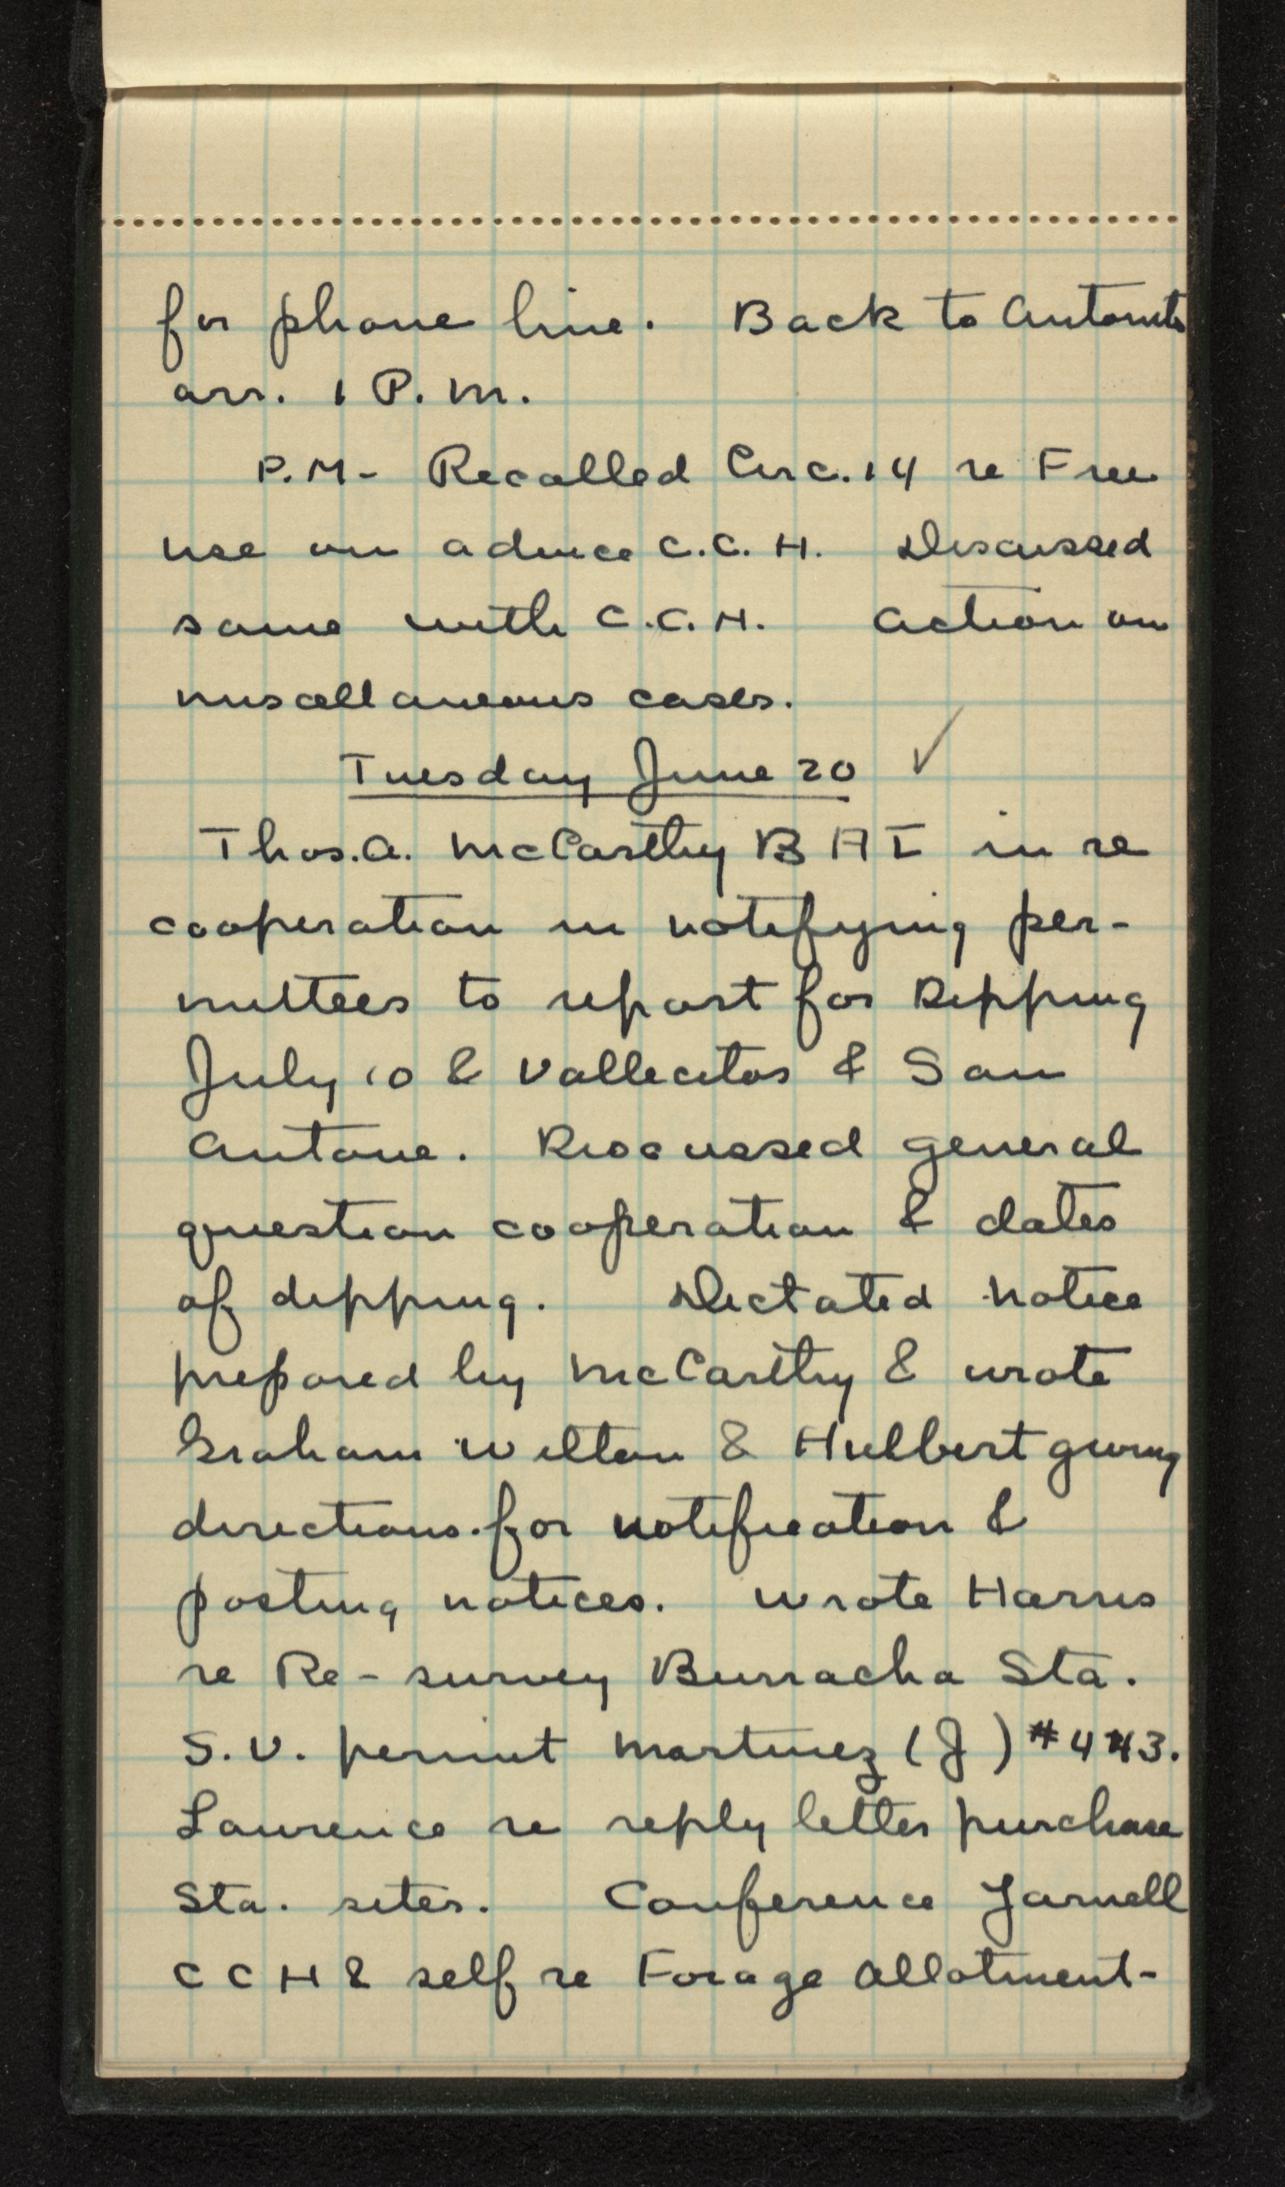 for phone line. Back to Antonito
arr. 1 P.M.
P.M- Recalled Circ. 14 re Free
use on advice C.C.H. Discussed
same with C.C.H. Action on
miscellaneous cases.
Tuesday June 20 ✓
Thos. A. McCarthy B A I in re
cooperation in notifying per-
mittees to report for Dipping
July 10 & Vallecitos & San
Antone. Discussed general
question cooperation & dates
of dipping. Dictated notice
prepared by McCarthy & wrote
Graham Wilton & Hulbert giving
directions for notification &
posting notices. Wrote Harris
re Re-survey Burracha Sta.
S.U. permit Martinez (J) #443.
Laurence re reply letter purchase
Sta. sites. Conference Yarnell
C C H & self re Forage Allotment-